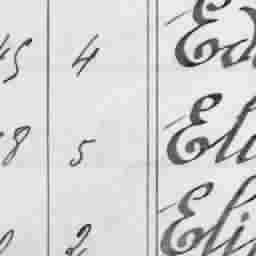 45 4 Ed
8 5 Eli
2 Eli